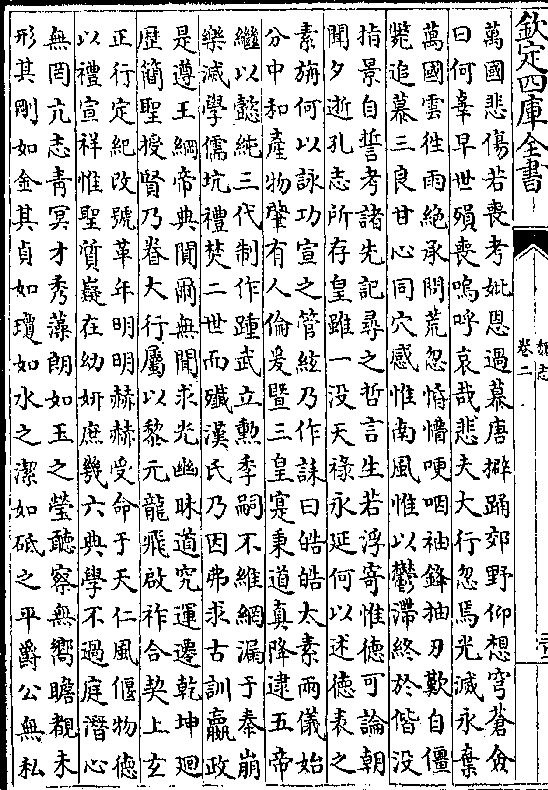 欽定四庫全書
魏志
卷二
萬國悲傷若喪考妣恩過慕唐擗踊郊野仰想穹蒼僉
曰何辜早世殞喪嗚呼哀哉悲夫大行忽焉光滅永棄
萬國雲徃雨絶承問荒忽惛懵哽咽袖鋒抽刃歎自僵
斃追慕三良甘心同穴感惟南風惟以鬱滯終於偕没
指景自誓考諸先記尋之哲言生若浮寄惟徳可論朝
聞夕逝孔志所存皇雖一没天祿永延何以述徳表之
素旃何以詠功宣之管絃乃作誄曰皓皓太素兩儀始
分中和產物肇有人倫爰暨三皇寔秉道真降逮五帝
繼以懿純三代制作踵武立勲季嗣不維網漏于秦崩
樂滅學儒坑禮焚二世而殲漢氏乃因弗求古訓嬴政
是遵王綱帝典闃爾無聞求光幽昧道究運遷乾坤廻
歴簡聖授賢乃眷大行屬以黎元龍飛啟祚合契上玄
五行定紀改號革年明明赫赫受命于天仁風偃物徳
以禮宣祥惟聖質嶷在幼妍庶幾六典學不過庭潛心
無罔亢志青冥才秀藻朗如玉之瑩聽察無嚮瞻覩未
形其剛如金其貞如瓊如水之潔如砥之平爵公無私